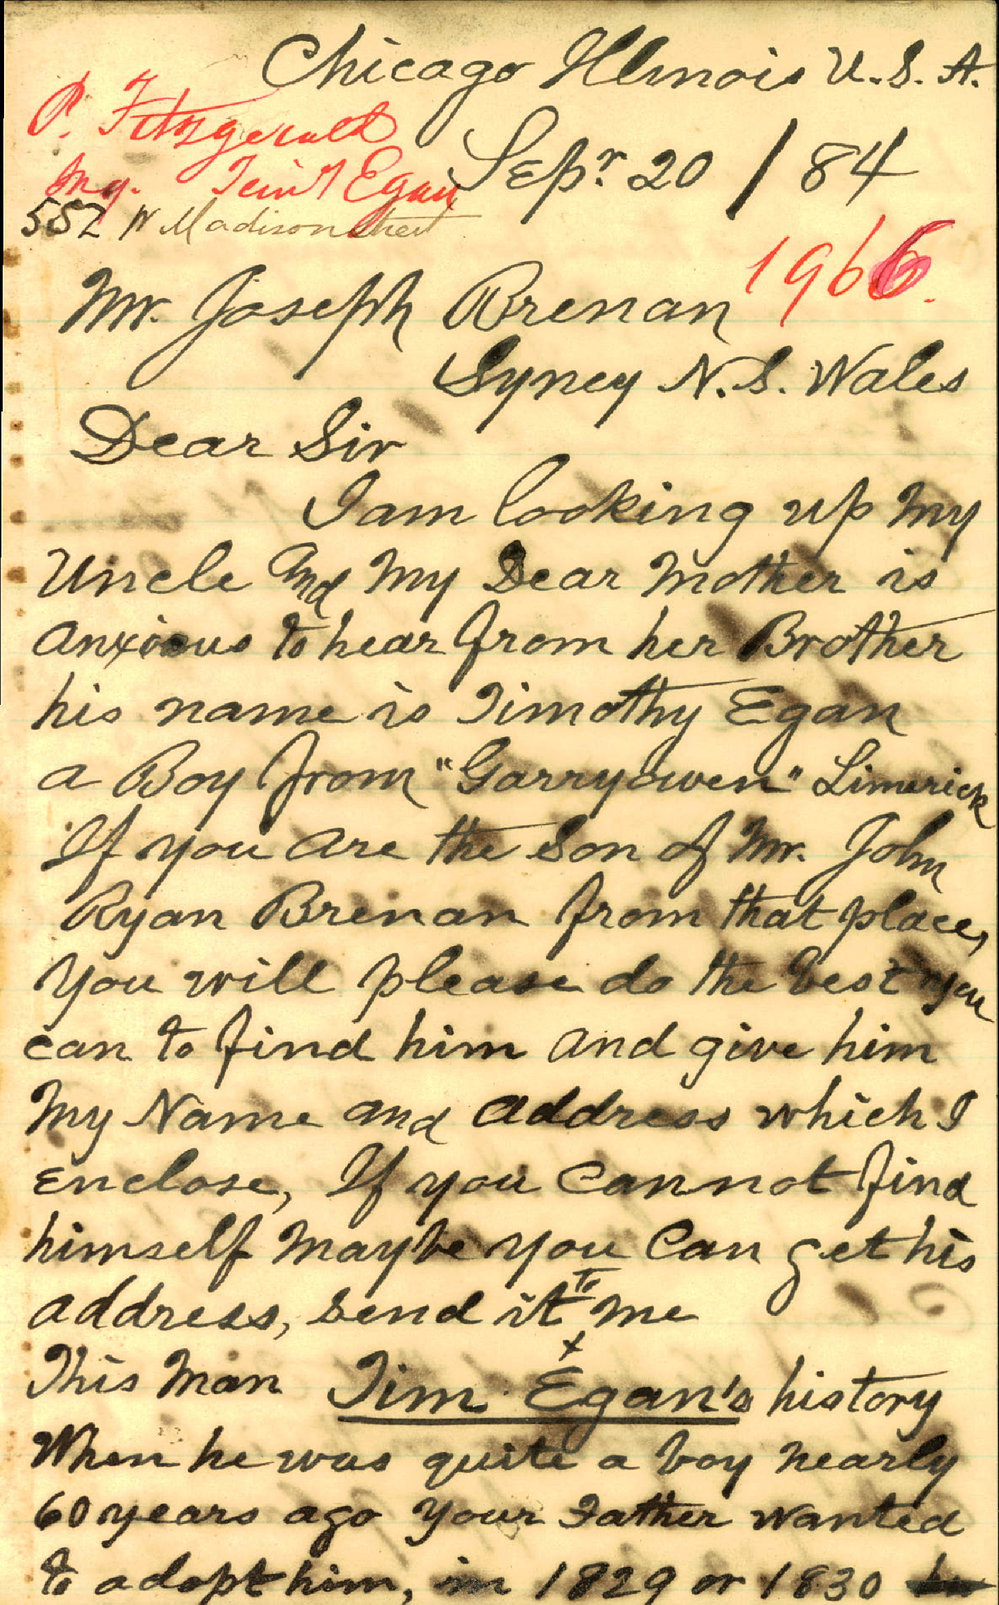 Chicago Illinois U.S.A.
P. Fitzgerald
Sepr. 20 / 84
Inq. Tim't Egan
552 W Madison street
1966.
Mr. Joseph Brenan
Syney N.S. Wales
Dear Sir
I am looking up my
Uncle and My Dear Mother is
anxious to hear from her Brother
his name is Timothy Egan
a Boy from "Garryowen" Limerick
If you are the Son of Mr. John
Ryan Brenan from that place,
You will please do the best you
can to find him and give him
My Name and address which I
enclose, If you cannot find
himself Maybe you Can get his
address, send it To me
x
This Man Tim Egan's history
When he was quite a boy nearly
60 years ago Your Father wanted
to adopt him, in 1829 or 1830